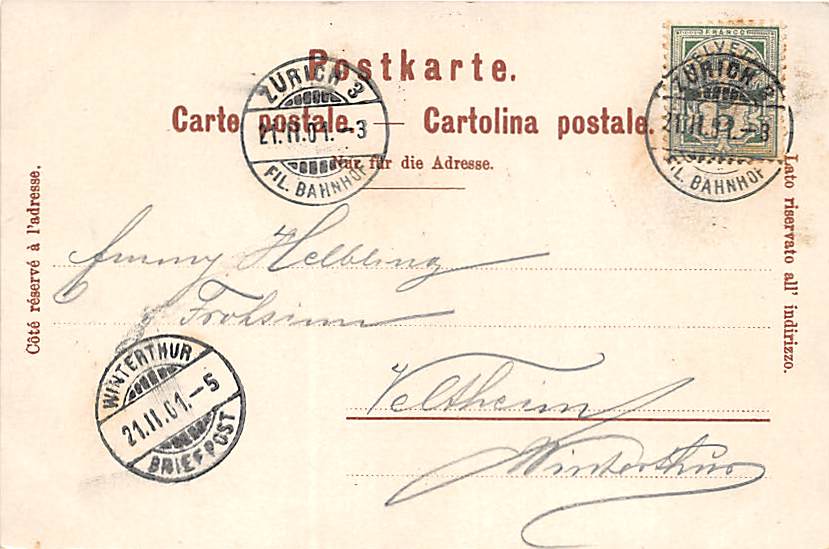 Postkarte.
Carte postale. — Cartolina postale.
Nur für die Adresse.
Côté réservé à l'adresse.
Lato riservato all' indirizzo.
FRANCO
HELVETIA
ZÜRICH 3
21.II.01.–3
FIL. BAHNHOF
ZÜRICH 3
21.II.01.–3
FIL. BAHNHOF
Emmy Helbling
Frohsinn
Veltheim
Winterthur
WINTERTHUR
21.II.01.–5
BRIEFPOST